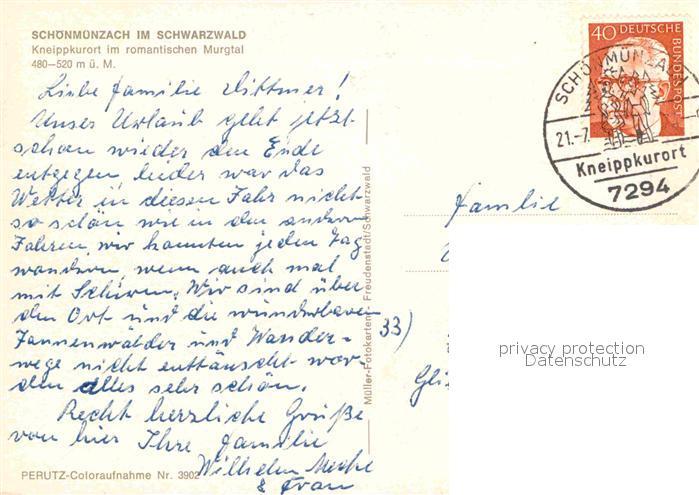 SCHÖNMÜNZACH IM SCHWARZWALD
Kneippkurort im romantischen Murgtal
480–520 m ü. M.
Liebe Familie Dittmer!
Unser Urlaub geht jetzt
schon wieder dem Ende
entgegen leider war das
Wetter in diesem Jahr nicht
so schön wie in den andern
Jahren, wir konnten jeden Tag
wandern, wenn auch mal
mit Schirm. Wir sind über
den Ort und die wunderbaren
Tannenwälder und Wander-
wege nicht enttäuscht wor-
den alles sehr schön.
Recht herzliche Grüße
von hier Ihre Familie
Wilhelm
& Frau
PERUTZ-Coloraufnahme Nr. 3902
Müller-Fotokarten - Freudenstadt/Schwarzwald
40 DEUTSCHE
BUNDESPOST
SCHÖNMÜNZA
21.-7.
Kneippkurort
7294
Familie
33)
privacy protection
Datenschutz